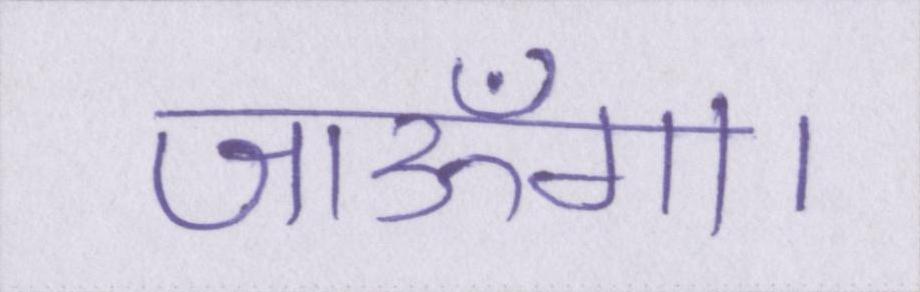 जाऊँगा।